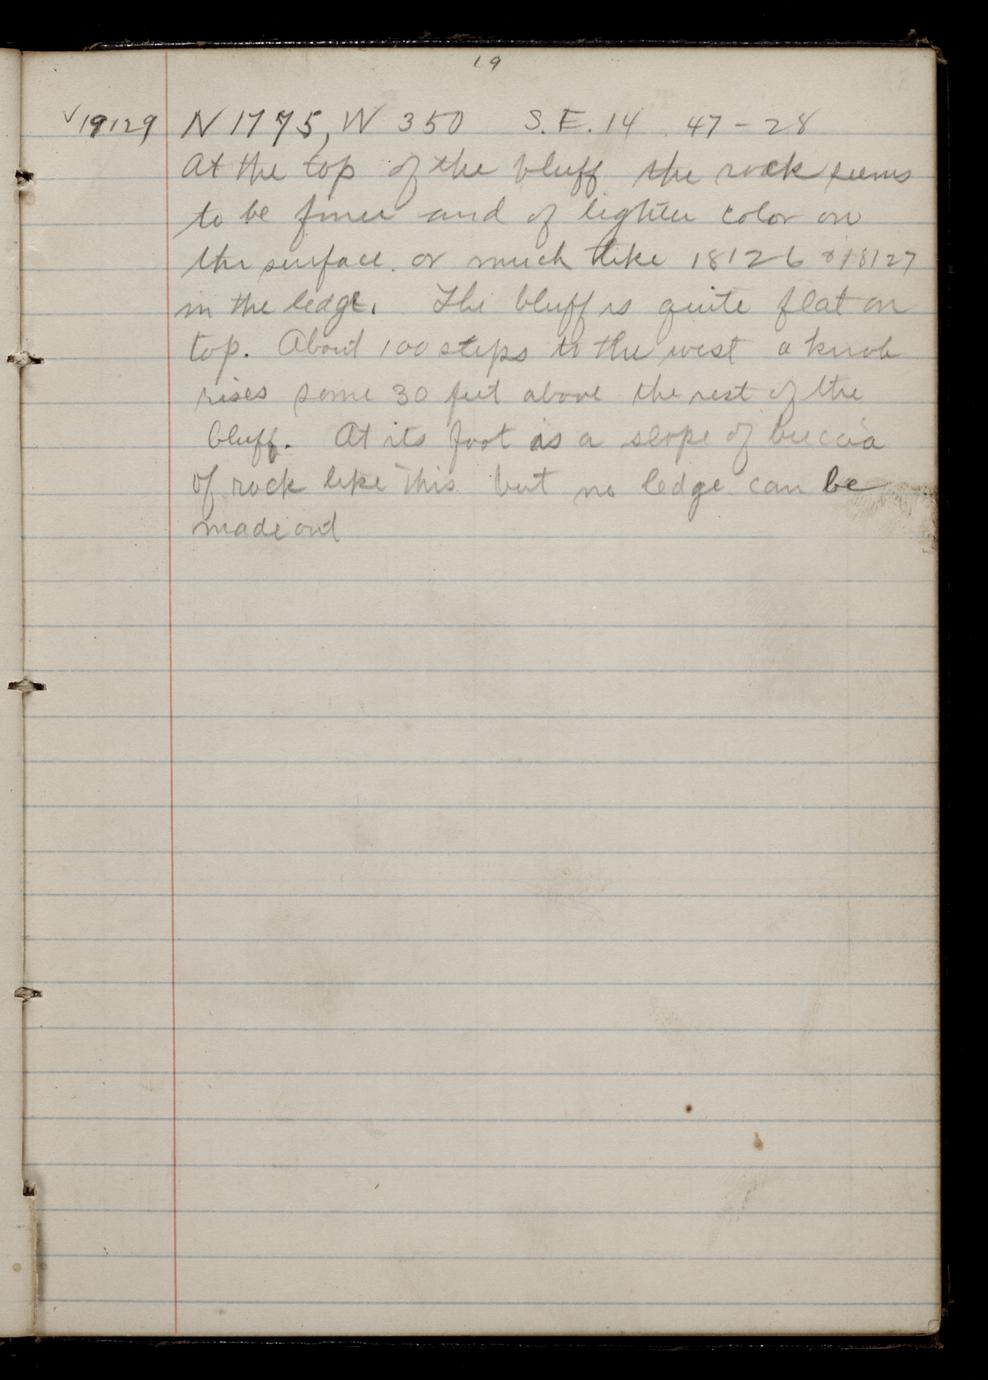 19
✓19129 N 1775, W 350 S.E. 14 47-28
At the top of the bluff the rock seems
to be finer and of lighter color on
the surface or much like 18126 & 18127
in the ledge. The bluff is quite flat on
top. About 100 steps to the west a knob
rises some 30 feet above the rest of the
bluff. At its foot is a slope of breccia
of rock like this but no ledge can be
made out